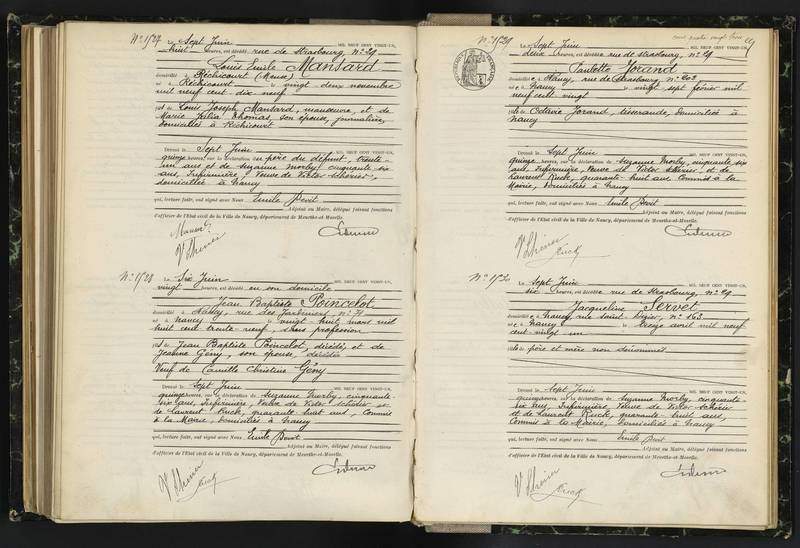 N° 1527
Le Sept Juin MIL NEUF CENT VINGT-UN,
huit heures, est décédé rue de Strasbourg, n° 29
Louis Emile Mansard
domicilié à Réchicourt (Meuse)
né à Réchicourt le vingt deux novembre
mil neuf cent dix neuf
fils de Louis Joseph Mansard, manœuvre, et de
Marie Julia Thomas, son épouse, journalière,
domiciliés à Réchicourt
Devant le Sept Juin MIL NEUF CENT VINGT-UN,
quinze heures, sur la déclaration du père du défunt, trente
un ans et de Suzanne Morby, cinquante six
ans, Infirmière, Veuve de Victor Schérier,
domiciliés à Nancy
qui, lecture faite, ont signé avec Nous Emile Devit
Adjoint au Maire, délégué faisant fonctions
d'officier de l'Etat civil de la Ville de Nancy, département de Meurthe-et-Moselle.
N° 1528
Le Six Juin MIL NEUF CENT VINGT-UN,
vingt heures, est décédé en son domicile
Jean Baptiste Poincelot
domicilié à Nancy, rue des Jardiniers, n° 71
né à Nancy le vingt-huit mars mil
huit cent trente-neuf, sans profession
fils de Jean Baptiste Poincelot, décédé, et de
Jeanne Gény, son épouse, décédée
Veuf de Camille Christine Gény
Devant le Sept Juin MIL NEUF CENT VINGT-UN,
quinze heures, sur la déclaration de Suzanne Morby, cinquante-
six ans, Infirmière, Veuve de Victor Schérier et
de Laurent Ruck, quarante huit ans, Commis
à la Mairie, domiciliés à Nancy
qui, lecture faite, ont signé avec Nous Emile Devit
Adjoint au Maire, délégué faisant fonctions
d'officier de l'Etat civil de la Ville de Nancy, département de Meurthe-et-Moselle.
N° 1529
Le Sept Juin MIL NEUF CENT VINGT-UN,
deux heures, est décédée rue de Strasbourg, n° 29
Paulette Jorand
domiciliée à Nancy, rue de Strasbourg, n° 203
née à Nancy le vingt sept février mil
neuf cent vingt
fille de Octavie Jorand, tisserande, domiciliée à
Nancy
Devant le Sept Juin MIL NEUF CENT VINGT-UN,
quinze heures, sur la déclaration de Suzanne Morby, cinquante six
ans, Infirmière, Veuve de Victor Schérier, et de
Laurent Ruck, quarante-huit ans, Commis à la
Mairie, domiciliés à Nancy
qui, lecture faite, ont signé avec Nous Emile Devit
Adjoint au Maire, délégué faisant fonctions
d'officier de l'Etat civil de la Ville de Nancy, département de Meurthe-et-Moselle.
Le Sept Juin MIL NEUF CENT VINGT-UN,
six heures, est décédée rue de Strasbourg, n° 29
Jacqueline Servet
domiciliée à Nancy, rue Saint Dizier, n° 163
née à Nancy le treize avril mil neuf
cent vingt un
fille de père et mère non dénommés
Devant le Sept Juin MIL NEUF CENT VINGT-UN,
quinze heures, sur la déclaration de Suzanne Morby, cinquante-
six ans, Infirmière, Veuve de Victor Schérier
et de Laurent Ruck, quarante-huit ans,
Commis à la Mairie, domiciliés à Nancy
qui, lecture faite, ont signé avec Nous Emile Devit
Adjoint au Maire, délégué faisant fonctions
d'officier de l'Etat civil de la Ville de Nancy, département de Meurthe-et-Moselle.